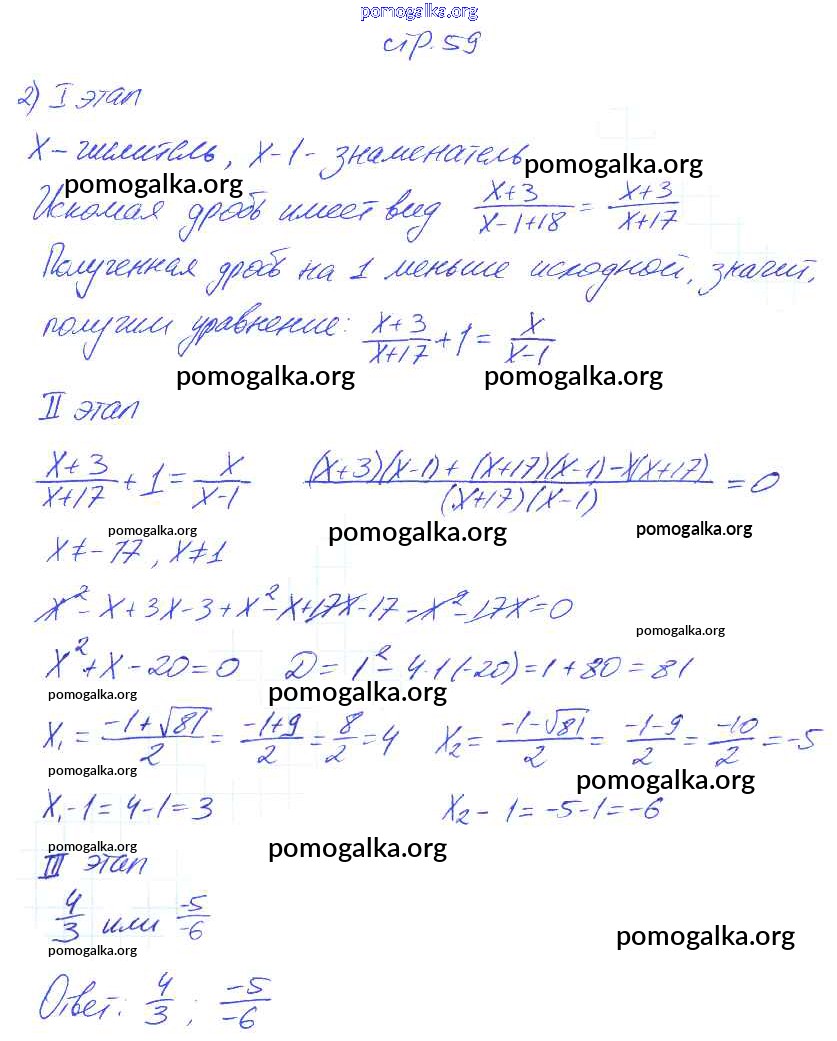 pomogalka.org
стр. 59
2) I этап
x - числитель, x-1 - знаменатель
pomogalka.org pomogalka.org
Искомая дробь имеет вид (x+3)/(x-1+18) = (x+3)/(x+17)
Полученная дробь на 1 меньше исходной, значит,
получим уравнение: (x+3)/(x+17) + 1 = x/(x-1)
pomogalka.org pomogalka.org
II этап
(x+3)/(x+17) + 1 = x/(x-1) ((x+3)(x-1) + (x+17)(x-1) - x(x+17))/((x+17)(x-1)) = 0
pomogalka.org pomogalka.org pomogalka.org
x ≠ -17, x ≠ 1
x² - x + 3x - 3 + x² - x + 17x - 17 - x² - 17x = 0
pomogalka.org
x² + x - 20 = 0 D = 1² - 4·1(-20) = 1 + 80 = 81
pomogalka.org pomogalka.org
x₁ = (-1+√81)/2 = (-1+9)/2 = 8/2 = 4 x₂ = (-1-√81)/2 = (-1-9)/2 = -10/2 = -5
pomogalka.org pomogalka.org
x₁ - 1 = 4 - 1 = 3 x₂ - 1 = -5 - 1 = -6
pomogalka.org pomogalka.org
III этап
4/3 или -5/-6
pomogalka.org pomogalka.org
Ответ: 4/3 ; -5/-6